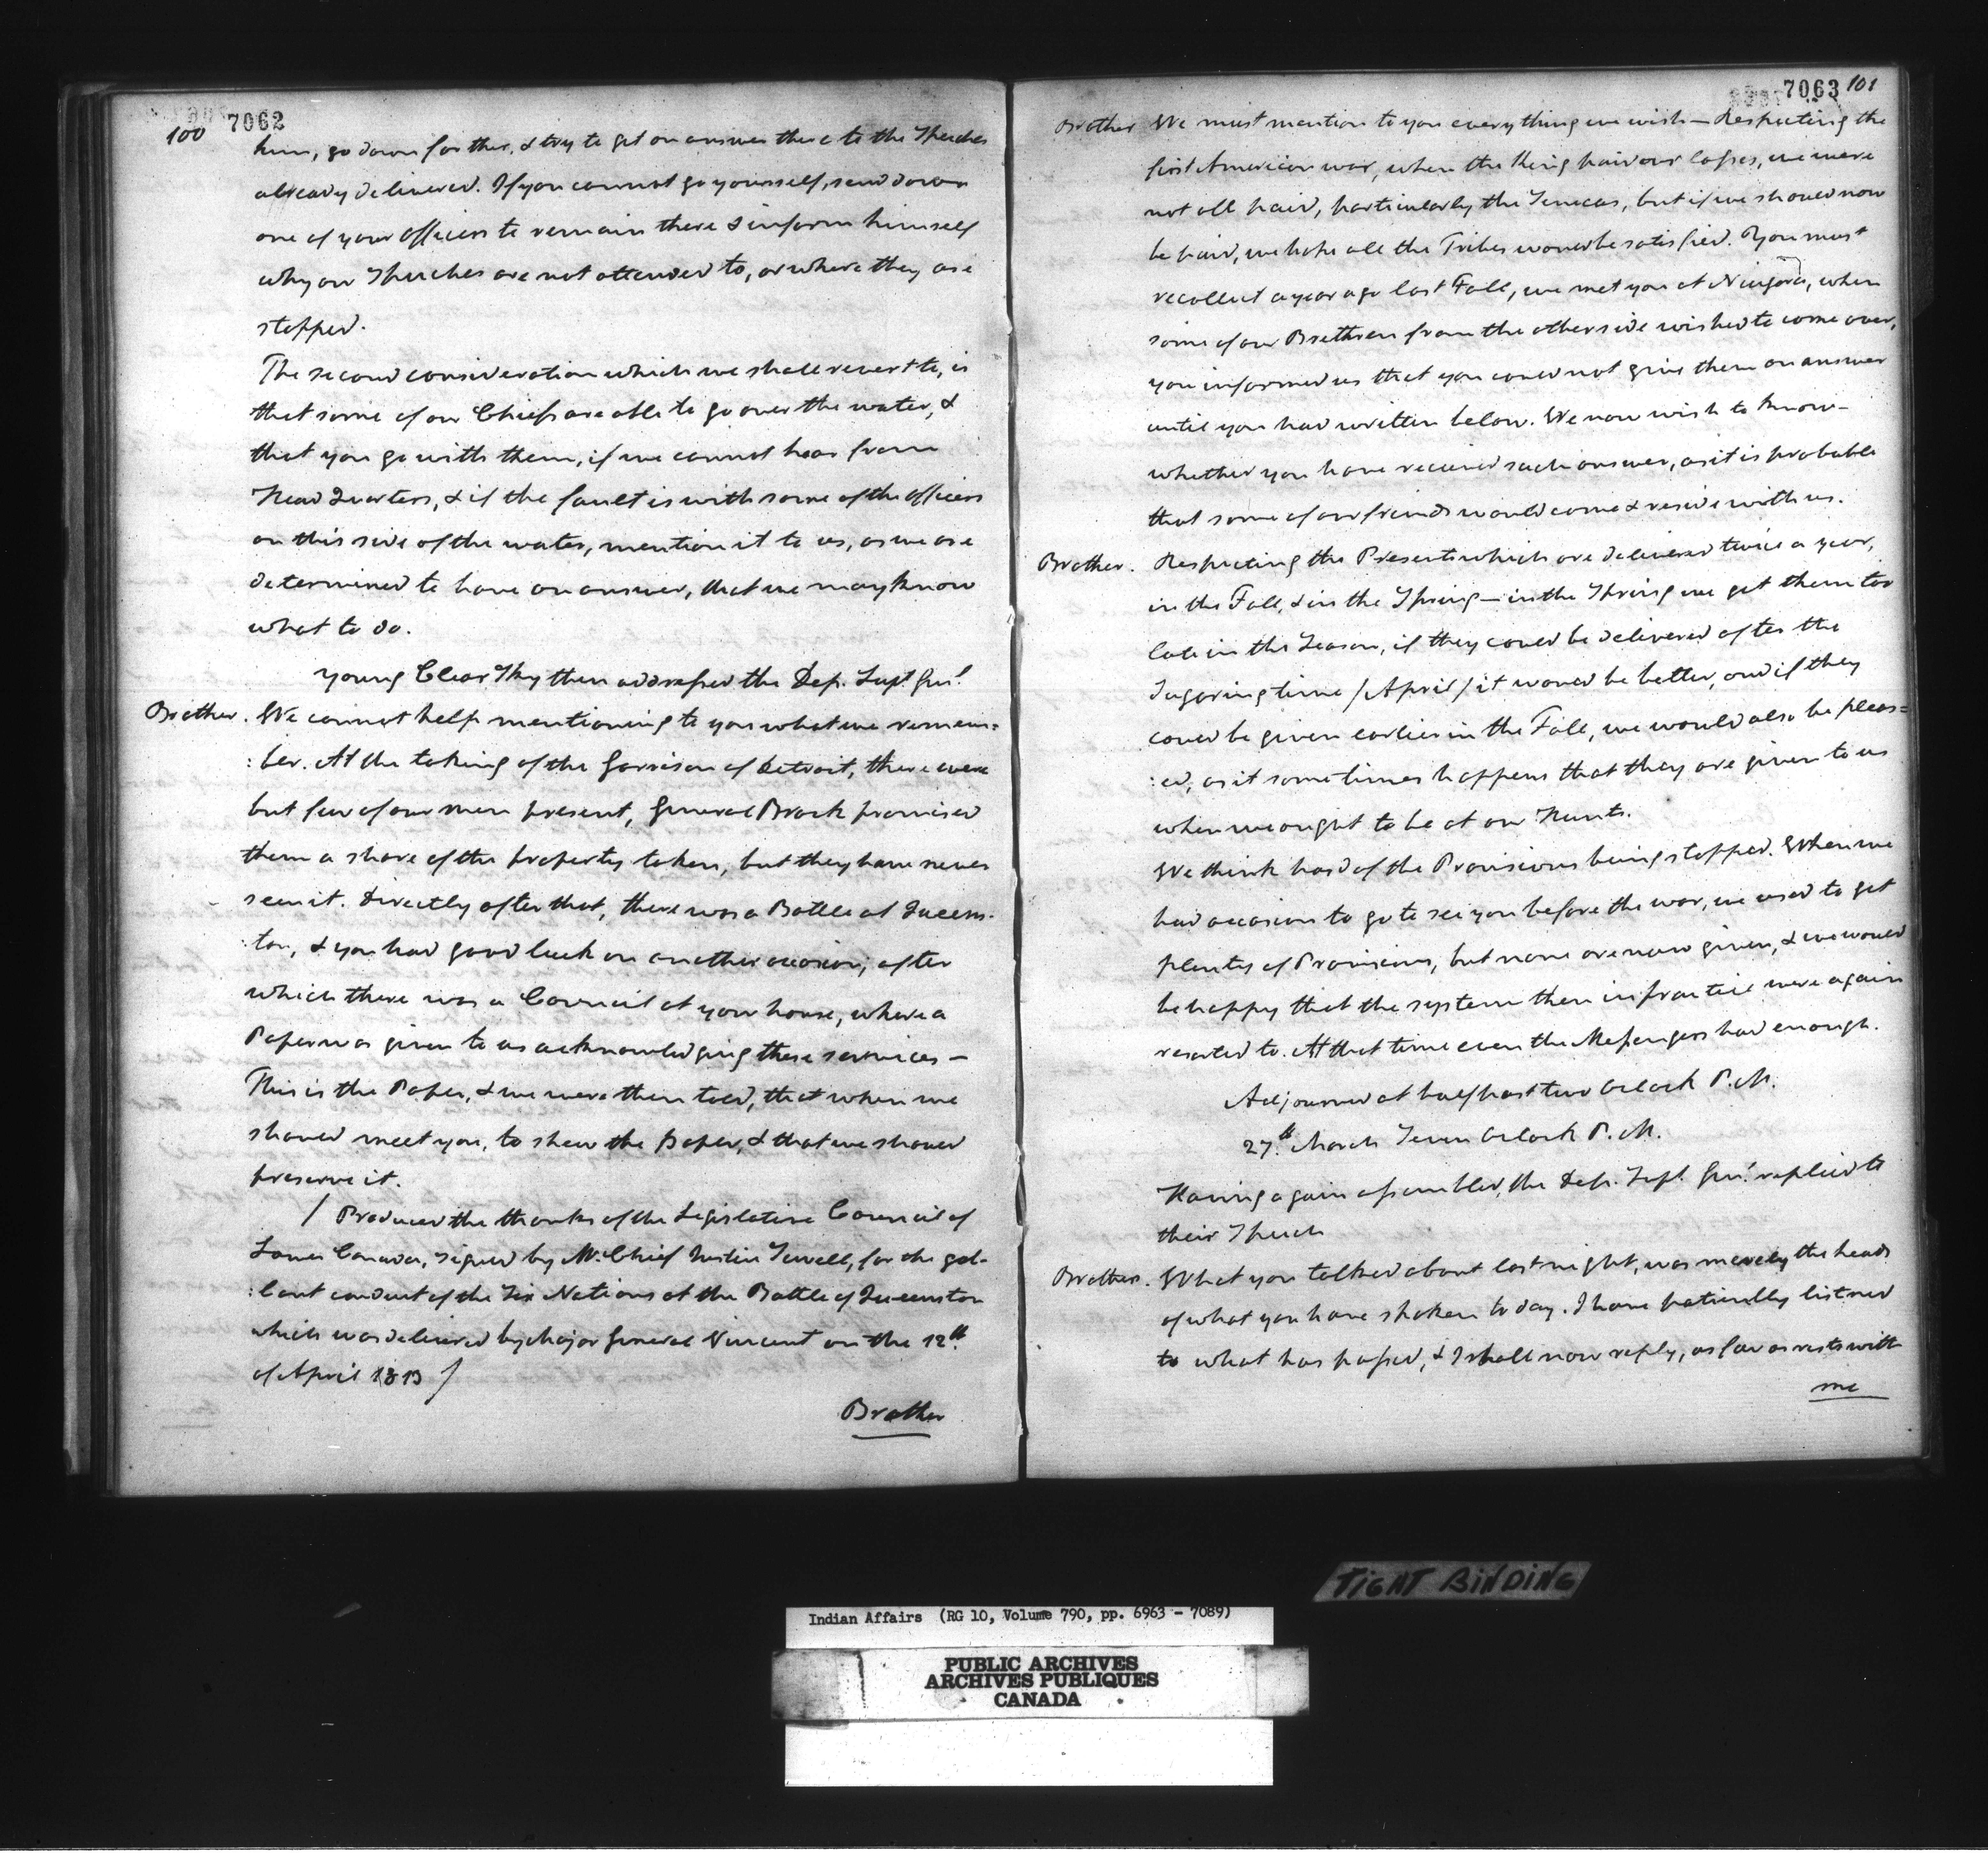 100 7062
him, go down farther, & try to get an answer there to the Speeches
already delivered. If you cannot go yourself, send down
one of your Officers to remain there & inform himself
why our Speeches are not attended to, or where they are
stopped.
The second consideration which we shall revert to, is
that some of our Chiefs are able to go over the water, &
that you go with them, if we cannot hear from
Head Quarters, & if the fault is with some of the officers
on this side of the water, mention it to us, as we are
determined to have an answer, that we may know
what to do.
Young Clear Sky then addressed the Dep. Supt. Genl.
Brother. We cannot help mentioning to you what we remem=
:ber. At the taking of the Garrison of Detroit, there were
but few of our men present, General Brock promised
them a share of the property taken, but they have never
seen it. Directly after that, there was a Battle at Queens-
:ton, & you had good luck on another occasion; after
which there was a Council at your house, where a
Paper was given to us acknowledging these services —
This is the Paper, & we were then told, that when we
should meet you, to shew the paper, & that we should
preserve it.
/ Produced the thanks of the Legislative Council of
Lower Canada, signed by Mr. Chief Justice Sewell, for the gal-
:lant conduct of the Six Nations at the Battle of Queenston
which was delivered by Major General Vincent on the 12th.
of April 1813 /
Brother
7063 101
Brother We must mention to you every thing we wish — Respecting the
first American war, when the King paid our losses, we were
not all paid, particularly the Senecas, but if we should now
be paid, we hope all the Tribes would be satisfied. You must
recollect a year ago last Fall, we met you at Niagara, when
some of our Brethren from the other side wished to come over,
you informed us that you could not give them an answer
until you had written below. We now wish to know
whether you have received such answer, as it is probable
that some of our friends would come & reside with us.
Brother. Respecting the Presents which are delivered twice a year,
in the Fall, & in the Spring — in the Spring we get them too
late in the Season, if they could be delivered after the
Sugaring time / April / it would be better, and if they
could be given earlier in the Fall, we would also be pleas=
:ed, as it sometimes happens that they are given to us
when we ought to be at our Hunts.
We think hard of the Provisions being stopped. When we
had occasion to go to see you before the war, we used to get
plenty of Provisions, but none are now given, & we would
be happy that the system then in practice were again
resorted to. At that time even the Messengers had enough.
Adjourned at half past two Oclock P.M.
27th. March Seven Oclock P.M.
Having again assembled, the Dep. Supt. Genl. replied to
their Speech
Brothers. What you talked about last night, was merely the heads
of what you have spoken to day. I have patiently listned
to what has passed, & I shall now reply, as far as rests with
me
TIGHT BINDING
Indian Affairs (RG 10, Volume 790, pp. 6963 - 7089)
PUBLIC ARCHIVES
ARCHIVES PUBLIQUES
CANADA